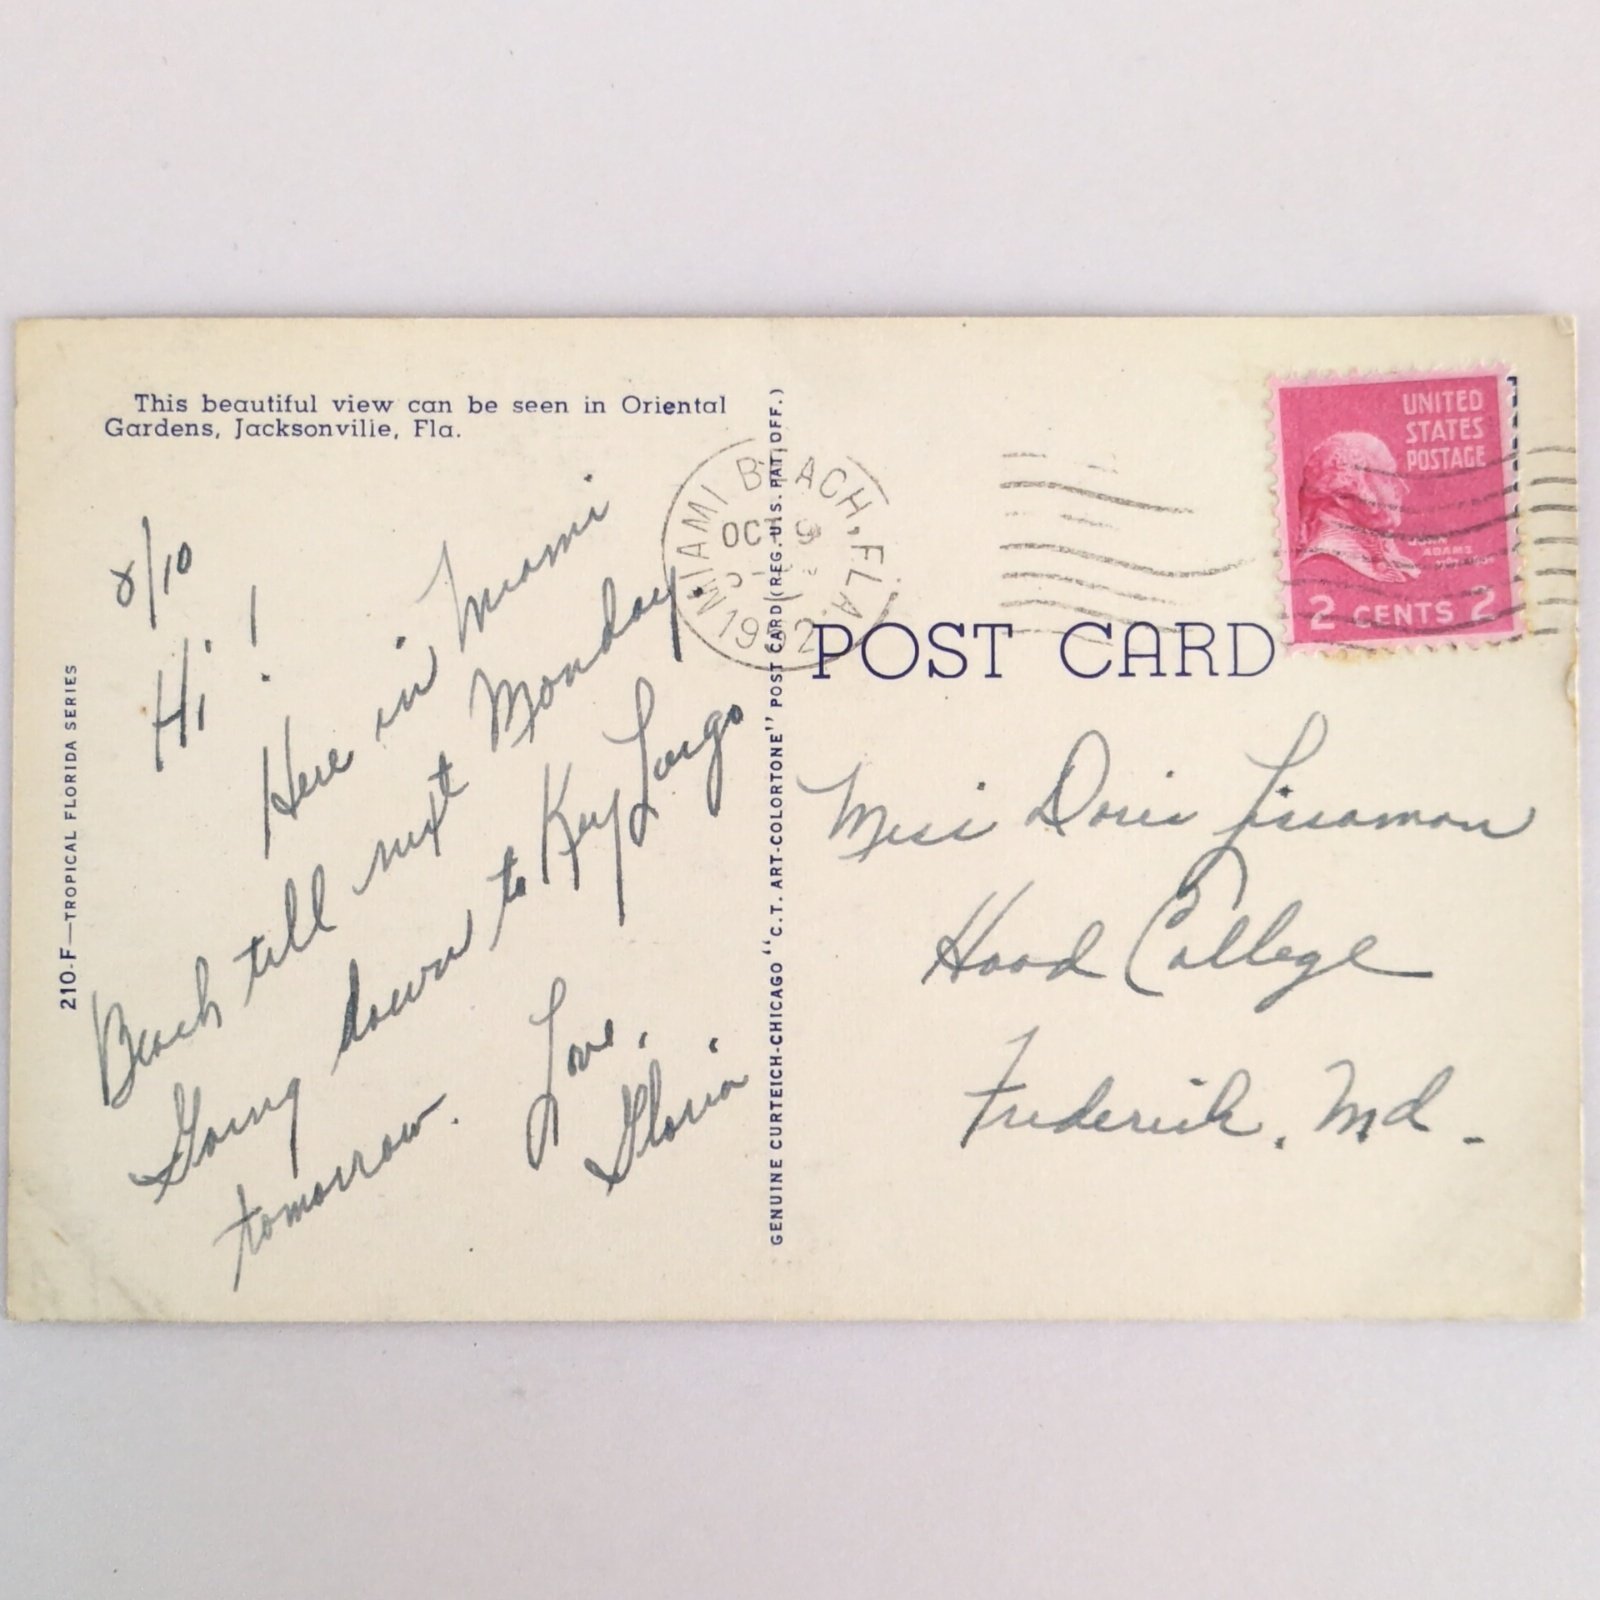 This beautiful view can be seen in Oriental
Gardens, Jacksonville, Fla.
8/10
Hi!
Here in Miami
Beach till next Monday
Going down to Key Largo
tomorrow.
Love,
Gloria
210-F—TROPICAL FLORIDA SERIES
GENUINE CURTEICH-CHICAGO "C.T. ART-COLORTONE" POST CARD (REG. U.S. PAT. OFF.)
MIAMI BEACH, FLA.
OCT 9
1952
UNITED
STATES
POSTAGE
JOHN
ADAMS
2 CENTS 2
POST CARD
Miss Doris Lissaman
Hood College
Frederick, Md.